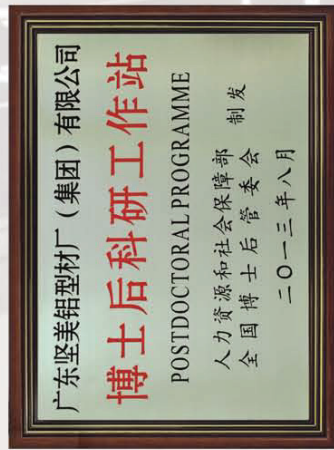 广东坚美铝型材厂（集团）有限公司
博士后科研工作站
POSTDOCTORAL PROGRAMME
人力资源和社会保障部
全国博士后管委会
制发
二〇一三年八月